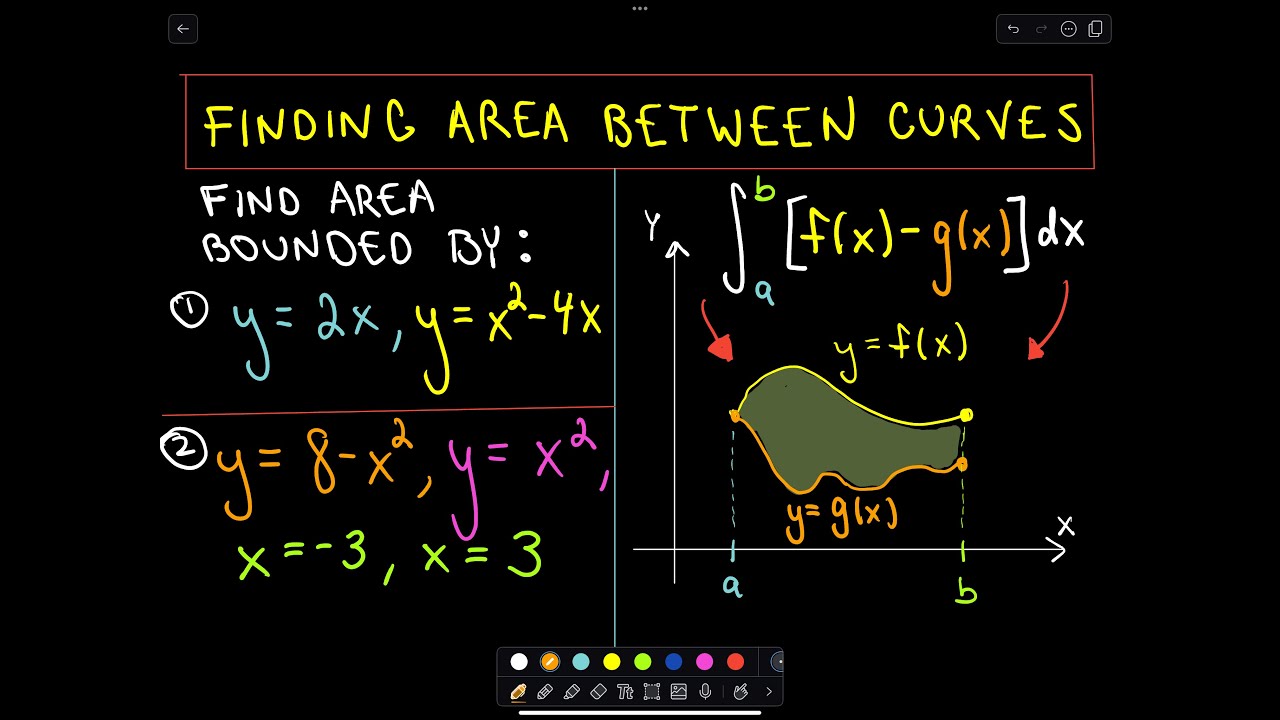 FINDING AREA BETWEEN CURVES
FIND AREA
BOUNDED BY:
① y = 2x, y = x²-4x
② y = 8-x², y = x²,
x = -3, x = 3
∫ₐᵇ [f(x) - g(x)] dx
Y
y = f(x)
y = g(x)
X
a
b
Tt